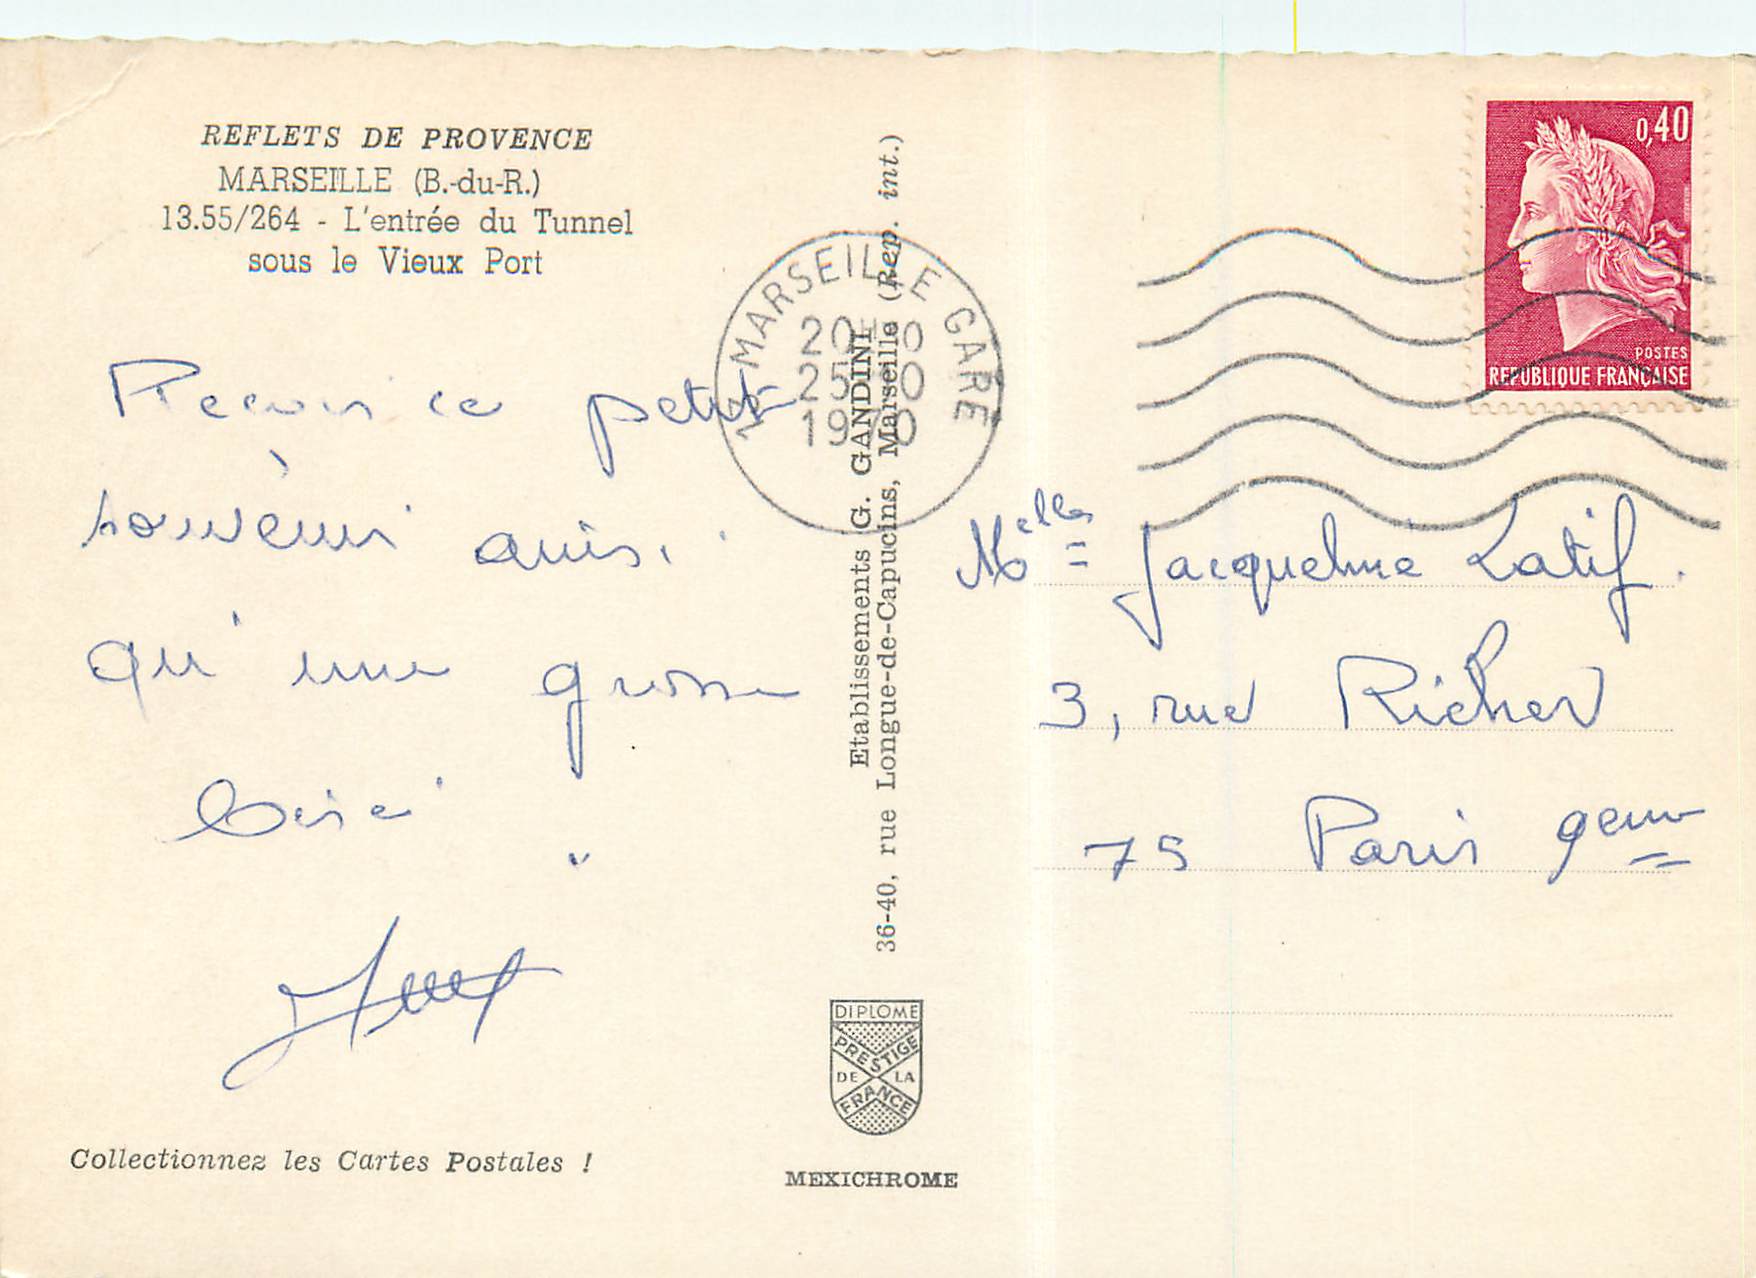 REFLETS DE PROVENCE
MARSEILLE (B.-du-R.)
13.55/264 - L'entrée du Tunnel
sous le Vieux Port
Recois ce petit
souvenir ainsi
qu'une grosse
bise
Collectionnez les Cartes Postales !
13 MARSEILLE GARE
25-10
1970
Etablissements G. GANDINI
36-40, rue Longue-de-Capucins, Marseille (Rep. int.)
DIPLOME
PRESTIGE
DE LA
FRANCE
MEXICHROME
0,40
POSTES
REPUBLIQUE FRANÇAISE
Melle Jacqueline Latif.
3, rue Richer
75 Paris 9em